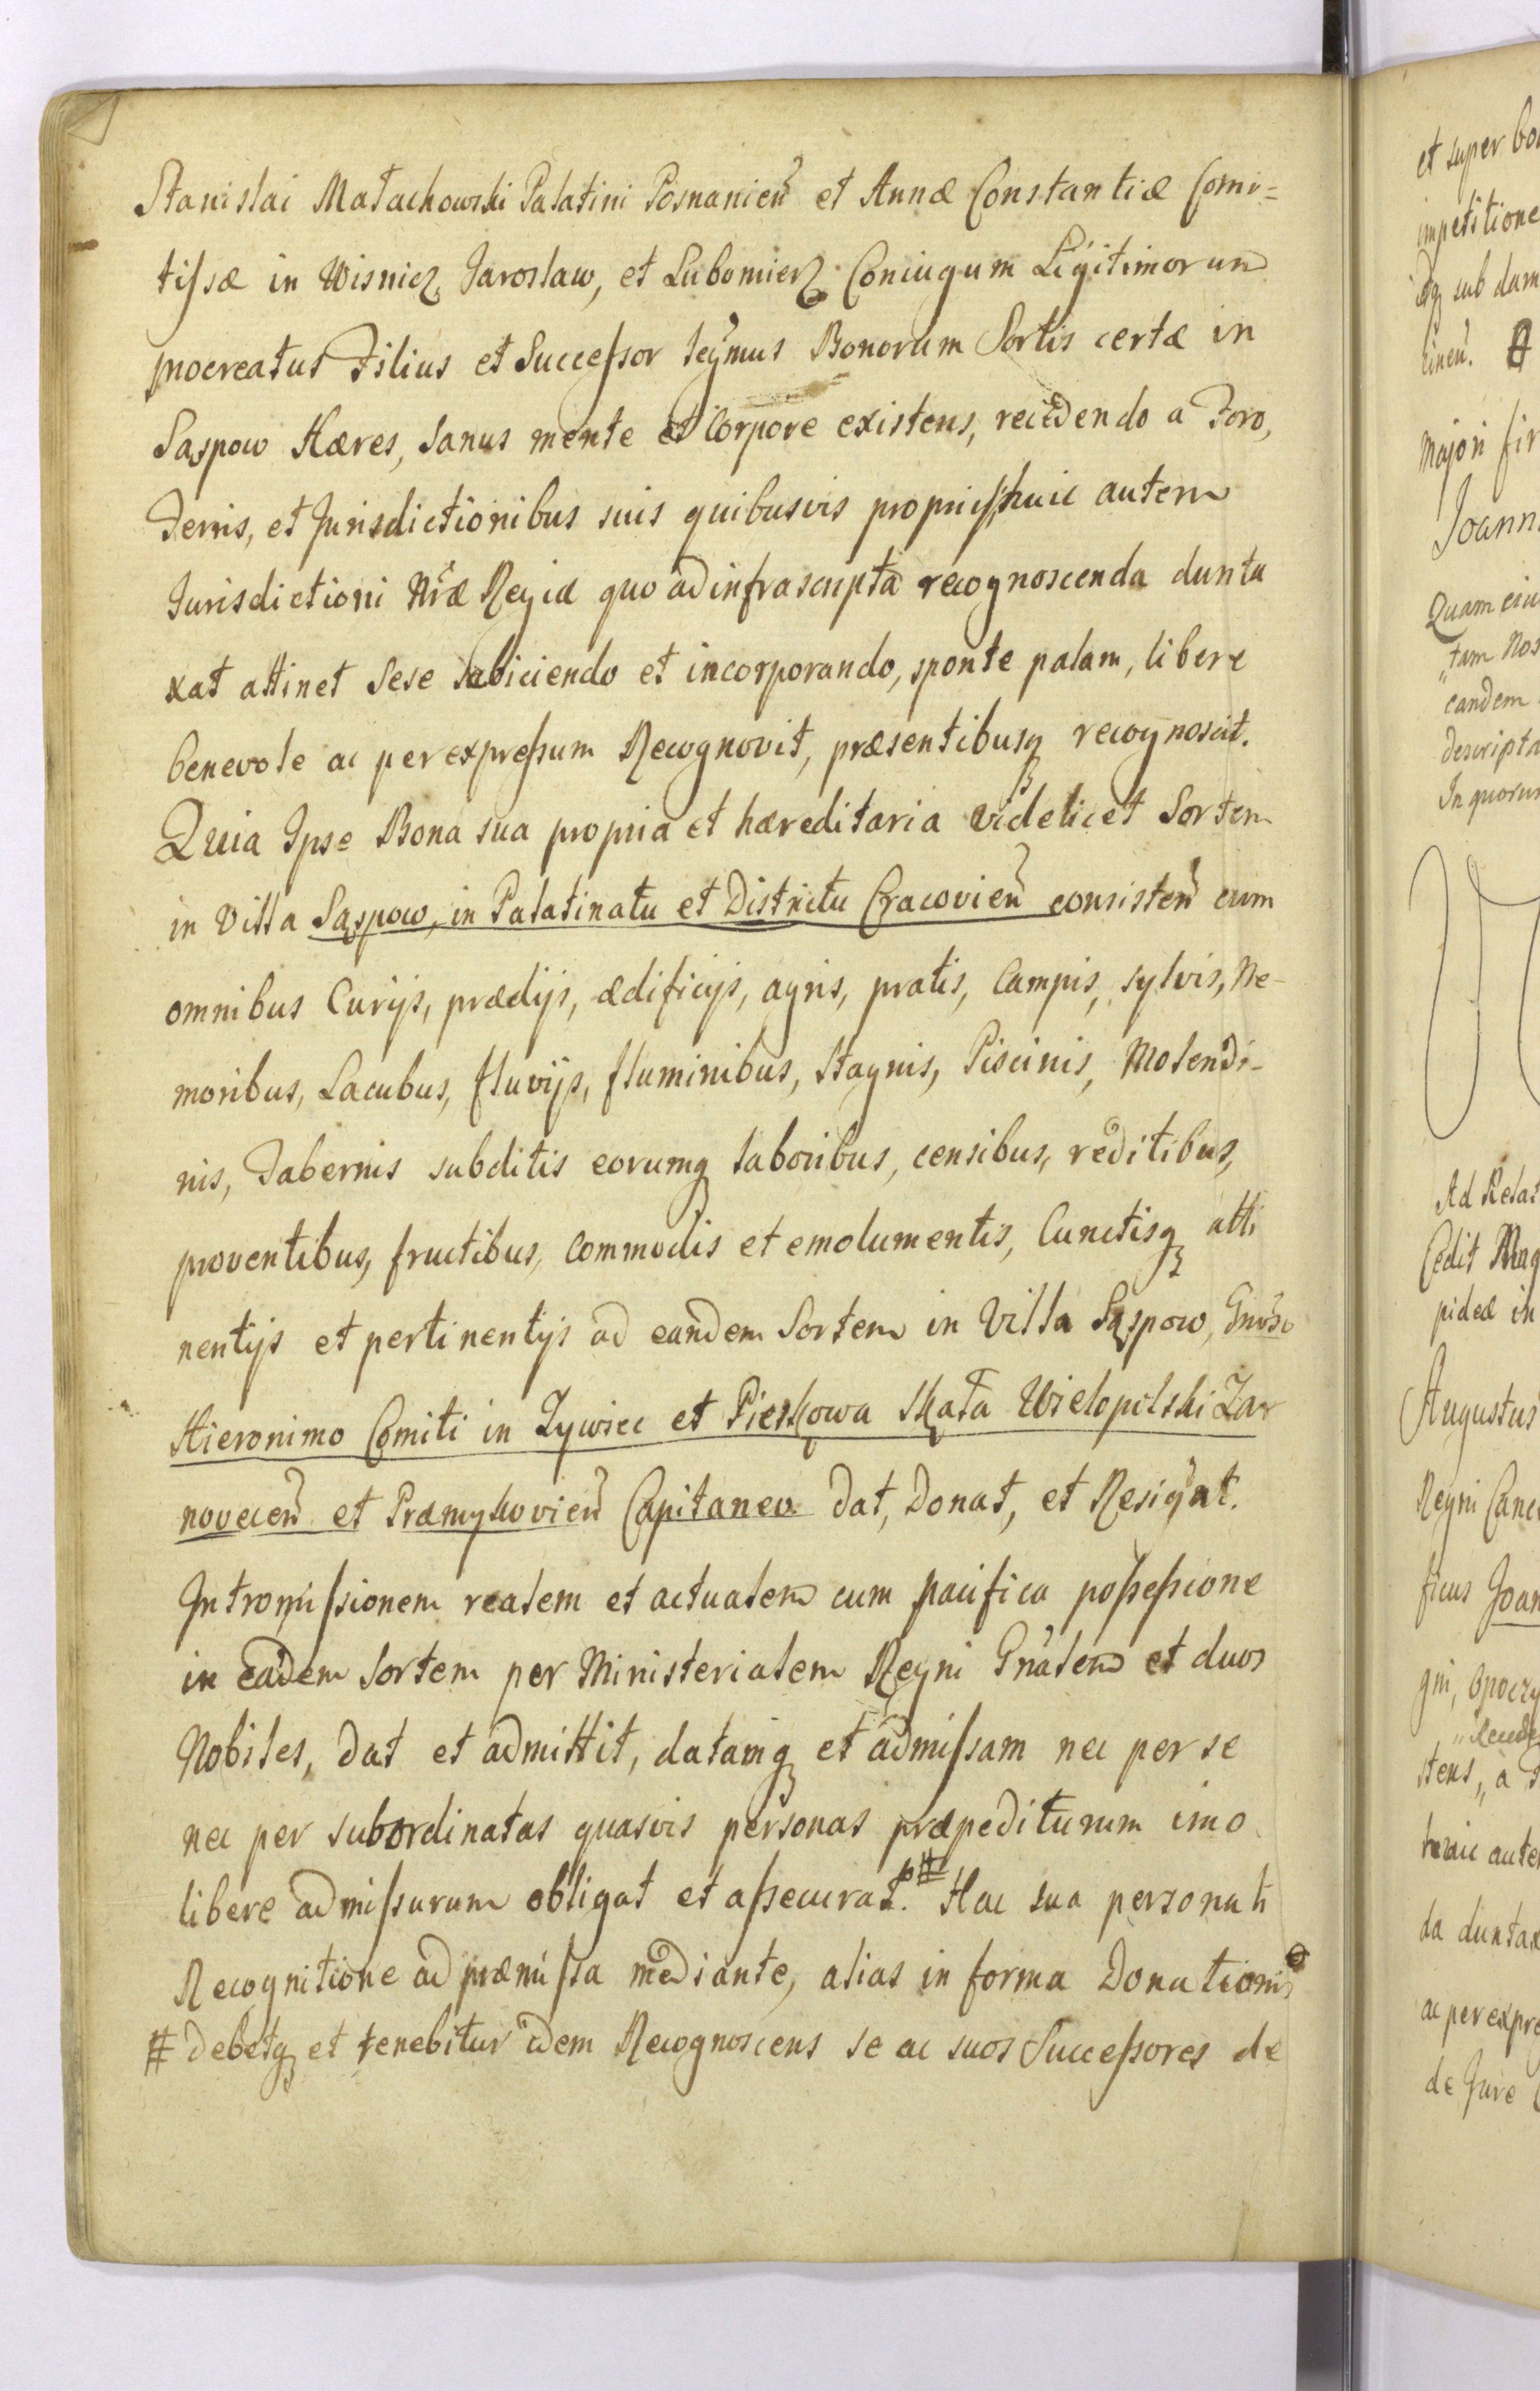 Stanislai Małachowski Palatini Posnanien̄ et Annæ Constantiæ Comi=
tiſsæ in Wisnicz, Jaroslaw, et Lubomierz Coniugum Legitimorum
procreatus Filius et Succeſsor legm̄us Bonorum Sortis certæ in
Sąspow Hæres, Sanus mente et Corpore existens, recedendo a Foro,
Terris, et Jurisdictionibus suis quibusvis proprijs, huic autem
Jurisdictioni Nr̄æ Regiæ quo ad infrascripta recognoscenda dunta
xat attinet Sese Subiiciendo et incorporando, sponte palam, libere
benevole ac per expreſsum Recognovit, præsentibusq recognoscit.
Quia Ipse Bona sua propria et hæreditaria videlicet Sortem
in Villa Sąspow, in Palatinatu et Districtu Cracovien̄ consisten̄ cum
omnibus Curijs, prædijs, ædificijs, agris, pratis, Campis, sylvis, Ne-
moribus, Lacubus, fluvijs, fluminibus, Stagnis, Piscinis, Molendi-
nis, Tabernis subditis eorumq laboribus, censibus, reditibus,
proventibus, fructibus, Commodis et emolumentis, Cunctisq atti
nentijs et pertinentijs ad eandem Sortem in Villa Sąspow, Gnōso
Hieronimo Comiti in Zywiec et Pieskowa Skała Wielopolski Zar
novecen̄ et Præmykovien̄ Capitaneo. Dat, Donat, et Resignat.
Intromiſsionem realem et actualem cum pacifica poſseſsione
in Eadem Sortem per Ministerialem Regni Gnālem et duos
Nobiles, Dat et admittit, datamq et admiſsam nec per se
nec per subordinatas quasvis personas præpediturum imo
libere admiſsurum obligat et aſsecurat. # Hac sua personali
Recognitione ad præmiſsa mediante, alias in forma Donationis
# Debetq et tenebitur idem Recognoscens se ac suos Succeſsores de
et super bo
impetitione
idq sub dam
majori fir
Joann
Quam eiu
tam Nos
eandem
descripta
In quorum
Ad Relat
Cedit Mag
pideæ in
Augustus
Regni Canc
ficus Joan
gni, Opoczy
stens, a
huic aute
da duntax
ac per expre
de Jure